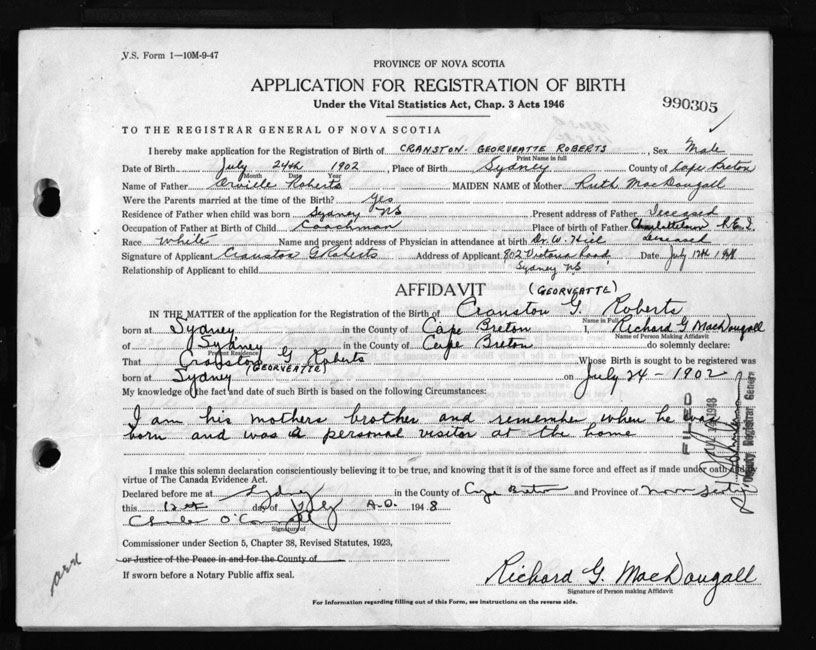 V.S. Form 1—10M-9-47
PROVINCE OF NOVA SCOTIA
APPLICATION FOR REGISTRATION OF BIRTH
Under the Vital Statistics Act, Chap. 3 Acts 1946
990305
TO THE REGISTRAR GENERAL OF NOVA SCOTIA
I hereby make application for the Registration of Birth of CRANSTON GEORVEATTE ROBERTS, Sex Male
Print Name in full
Date of Birth July 24th 1902, Place of Birth Sydney County of Cape Breton
Month Date Year
Name of Father Orville Roberts MAIDEN NAME of Mother Ruth MacDougall
Were the Parents married at the time of the Birth? Yes
Residence of Father when child was born Sydney NS Present address of Father Deceased
Occupation of Father at Birth of Child Coachman Place of birth of Father Charlottetown P.E.I.
Race White Name and present address of Physician in attendance at birth Dr. W. deceased
Signature of Applicant Cranston G Roberts Address of Applicant 802 Victoria Road Date July 12th 1948
Sydney NS
Relationship of Applicant to child
AFFIDAVIT (GEORVEATTE)
IN THE MATTER of the application for the Registration of the Birth of Cranston G. Roberts
Name in Full
born at Sydney in the County of Cape Breton I, Richard G MacDougall
Name of Person Making Affidavit
of Sydney in the County of Cape Breton do solemnly declare:
Present Residence
That Cranston G Roberts Whose Birth is sought to be registered was
(GEORVEATTE)
born at Sydney on July 24 - 1902
My knowledge of the fact and date of such Birth is based on the following Circumstances:
I am his mothers brother and remember when he was
born and was a personal visitor at the home
FILED
1948
Deputy Registrar General
I make this solemn declaration conscientiously believing it to be true, and knowing that it is of the same force and effect as if made under oath and by
virtue of The Canada Evidence Act.
Declared before me at Sydney in the County of Cape Breton and Province of Nova Scotia
this 12th day of July A.D. 1948
Signature of
Commissioner under Section 5, Chapter 38, Revised Statutes, 1923,
or Justice of the Peace in and for the County of
If sworn before a Notary Public affix seal.
Richard G. MacDougall
Signature of Person making Affidavit
For information regarding filling out of this Form, see instructions on the reverse side.